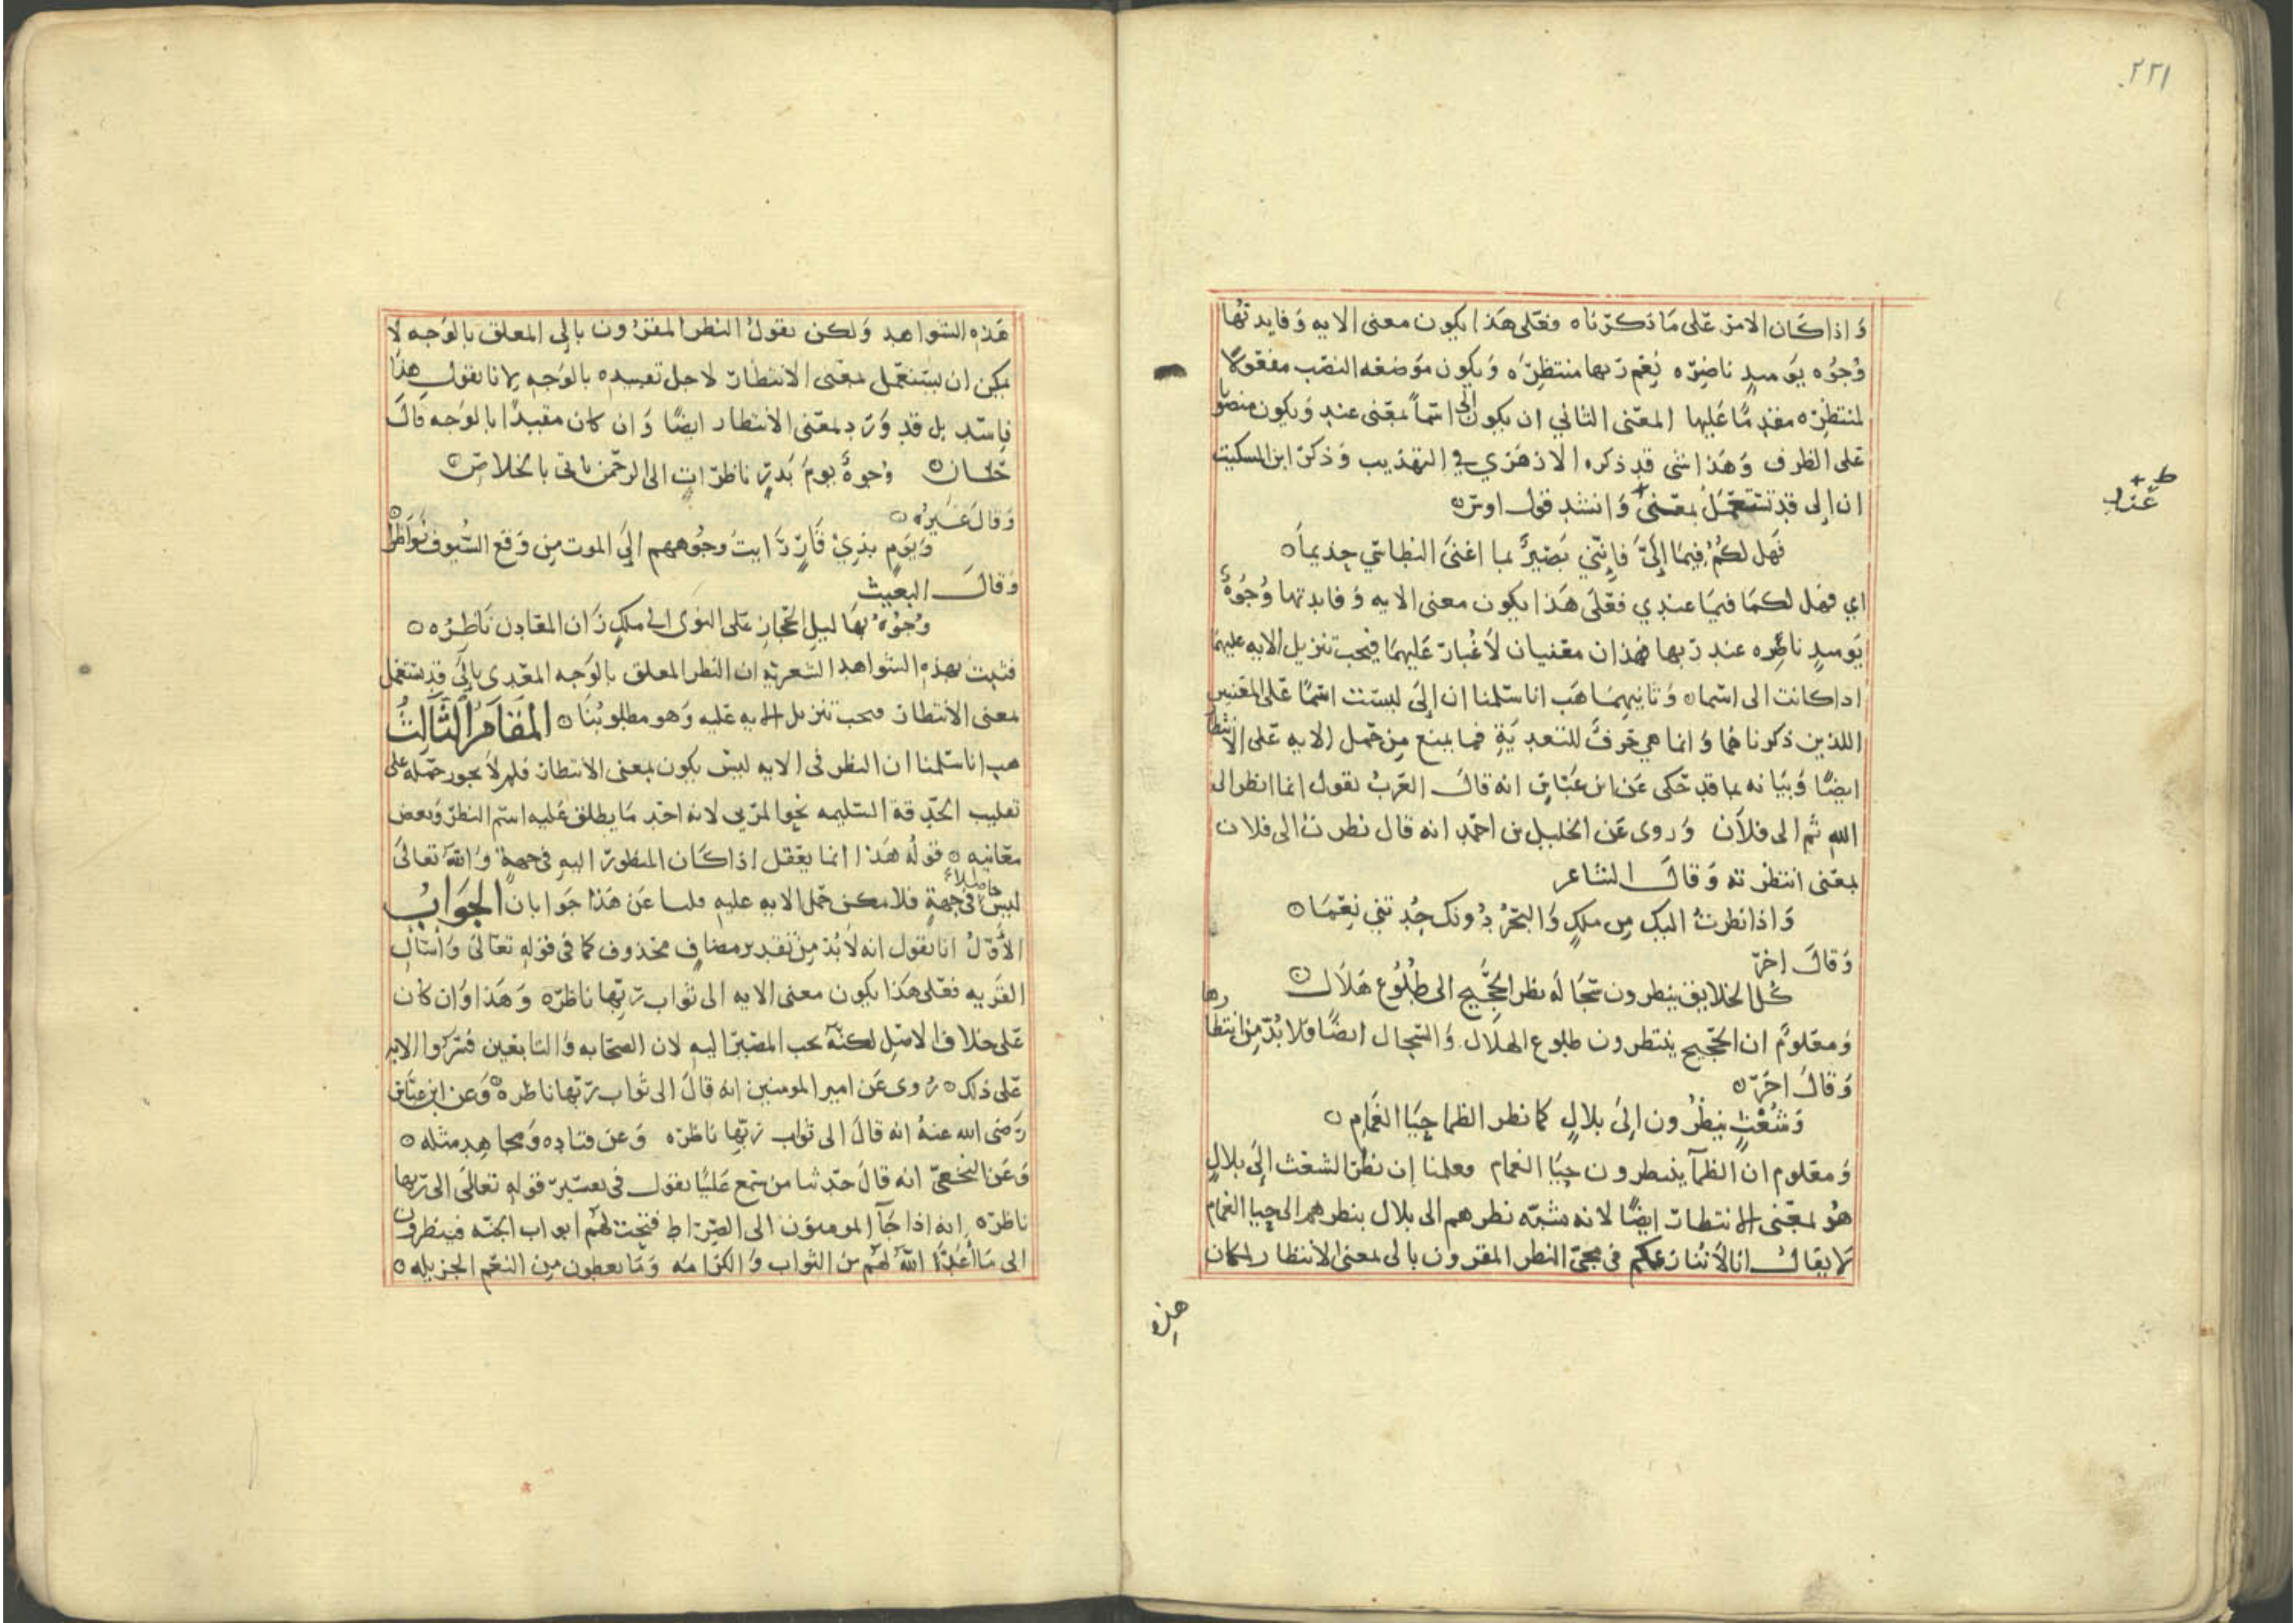 ٢٢١
وَاذا كَان الامرُ عَلى مَا ذكرناه فعَلى هَذا يكون معنى الايه وَفايدتُها
وُجُوه يَومىدٍ ناضِرَه نِعَم رَبها منتظِرَه وَيكون مَوضعُه النصْب مفعُولاً
لمنتظِرَه مقدمًا عَليها المعنى الثاني ان يكون الى اسْماً بمعْنى عند وَيكون منصوبا
عَلى الظرف وَهَذا شى قد ذكره الازهَري في التهذيب وَذكرَ ابن السكيت
ان إلى قد تستعمَلُ بمعْنى وَانشد قول اوس
عند
ط
فَهَل لكُمُ فيمَا إلَيَّ فَإنّني بَصِيرٌ بما اعْنىَ النطاسي حِذيماَ
اي فهَل لكمَا فيمَا عندي فعَلَى هَذا يكون معنى الايه وَفايدتها وُجُوهٌ
يَومىدٍ ناظِره عند ربها فهذان معْنيان لاَغُبارَ عَليهمَا فيجب تنزيل الايه عليهمَا
اذا كانت الى اسْما وَثانيهمَا هَب اناسَلمنا ان إلَى ليسَت اسْمًا عَلى المعْنيين
اللذين ذكرناهُما وَانما هي حَرفٌ للتعديَةِ فما يمنع مِن حَمل الايه عَلى الانتطار
ايضًا وَبيَانه بما قد حَكى عَن ابن عَبّاسٍ انه قالَ العَربُ تقول انما انظر الى
الله ثم الى فلاَن وَروى عَن الخليل بن احمَد انه قال نظرت الى فلان
بمعْنى انتظرته وَقالَ الشاعر
وَاذا نظرتُ اليك مِن ملكٍ وَالبَحْرُ دُونك جُدتني نِعَمَا
وَقالَ اخرَ
كُل الخلايق ينظرون سَجَالَه نظر الحَجيج الى طُلُوع هَلاَل
وَمعْلومٌ ان الحَجيج ينتظرون طلوع الهلال وَالسّجال ايضًا فلا بُدّ مِن انتظارها
وَقالَ اخَرَ
وَشُعْثٍ ينظُرُون إلَى بلالٍ كما نظر الظما حِيَا الغَمام
وَمعْلوم ان الظمآ ينتظرون حِيَا الغمام فعلمنا إن نظَر الشعْث إلَى بلالٍ
هُو لمعْنى الانتظار ايضًا لانه شبّه نظرهم الى بلال بنظرهم الى حِيا الغمام
لا يقالُ انا لاَ نُنازعكم في مجئ النظر المقرون بالى لمعنى الانتظار لمكان
هذه
هَذه الشواهد وَلكن نقولُ النظر المقرُون بإلى المعلق بالوَجه لاَ
يمكن ان يُستعمَل بمعْنى الانتظار لاجل تقييده بالوَجه لانا نقول هذا
فاسَد بل قد وَرَد بمعْنى الانتظار ايضًا وَان كان مقيدًا بالوَجه قالَ
حَسَان وُجوهٌ يومَ بَدرٍ ناظرَاتٍ الى الرحمَن ياتى بالخلاصِ
وَقالَ غَيرُه
وَيَومٍ بذِيْ قَارٍ رَايتُ وجُوههم إلَى الموت مِن وَقع السُّيوف نَوَاظِرا
وَقالَ البَعيث
وُجُوهٌ بهَا ليل الحجَازِ عَلى النوَى الى ملكٍ زَان المغَارِب نَاظِرُه
فثبتَ بهذه الشواهد الشعرية ان النظر المعلق بالوَجه المعَدى بإلَى قد يستعْمل
بمعنى الانتظار فيجب تنزيل الايه عَليه وَهو مطلوبُنَا المقَامُ الثَّالِثُ
هب انا سَلمنا ان النظر في الايه ليسَ يكون بمعنى الانتظار فلم لاَ يجوز حَمله على
تقليب الحَدقة السَليمه نحو المرَيى لانه احَد مَا يطلق عَليه اسْم النظرَ وَبعض
معَانيه قوْلُه هَذا انما يعْقل اذا كَان المنظورَ اليه في جهةٍ وَاللهُ تعَالىَ
ليسَ حَاصلاً في جهةٍ فلا يمكن حَمل الايه عليه قلنا عَن هَذا جَوابان الجَوَابُ
الأوَّلُ انا نقول انه لاَ بُدَّ مِن تقدير مضافٍ محذوف كما في قوله تعَالىَ وَاسْأل
القَريه فعَلى هَذا يكون معنى الايه الى ثَواب رَبّها ناظرَه وَهَذا وَان كان
عَلى خلاف الاصْلِ لكنّه يجب المصَيرُ اليه لان الصحَابه وَالتابعَين فسَّروا الايه
عَلى ذلك رُوى عَن امير المومنين انه قالَ الى ثوَاب رَبّها ناظره وَعن ابن عبّاس
رَضى الله عنهُ انه قالَ الى ثوَاب رَبّها ناظرَه وَعن قتاده وَمجاهد مثله
وَعَن النخَعيّ انه قالَ حَدثنا من سَمع عَليًا يقول في تفسير قوله تعالىَ الى رَبها
ناظرَه إنه اذا جَآ المومنُون الى الصِّرَاط فتحِت لهُم ابواب الجنّه فينظرون
الى مَا أعَدَّ اللهُ لهُم مِن الثواب وَالكرَامَه وَمَا يعطون مِن النعَم الجزيله